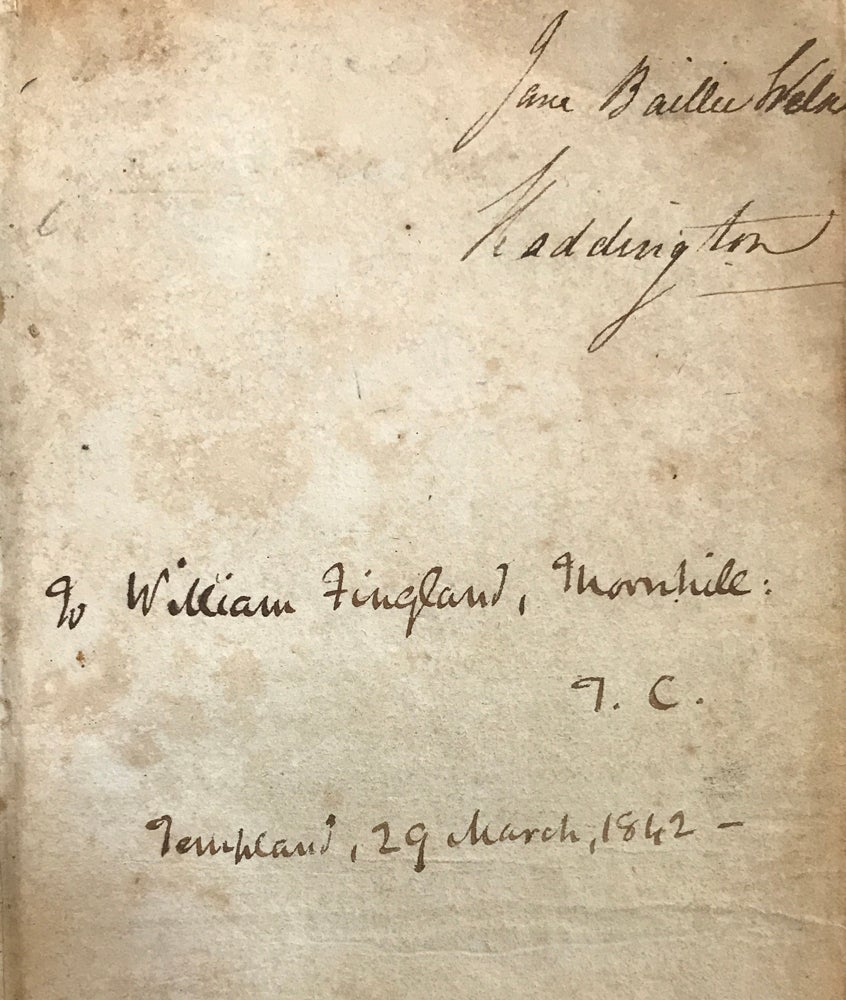 Jane Baillie Welsh
Haddington
To William Fingland, Thornhill:
T. C.
Templand, 29 March, 1842 –